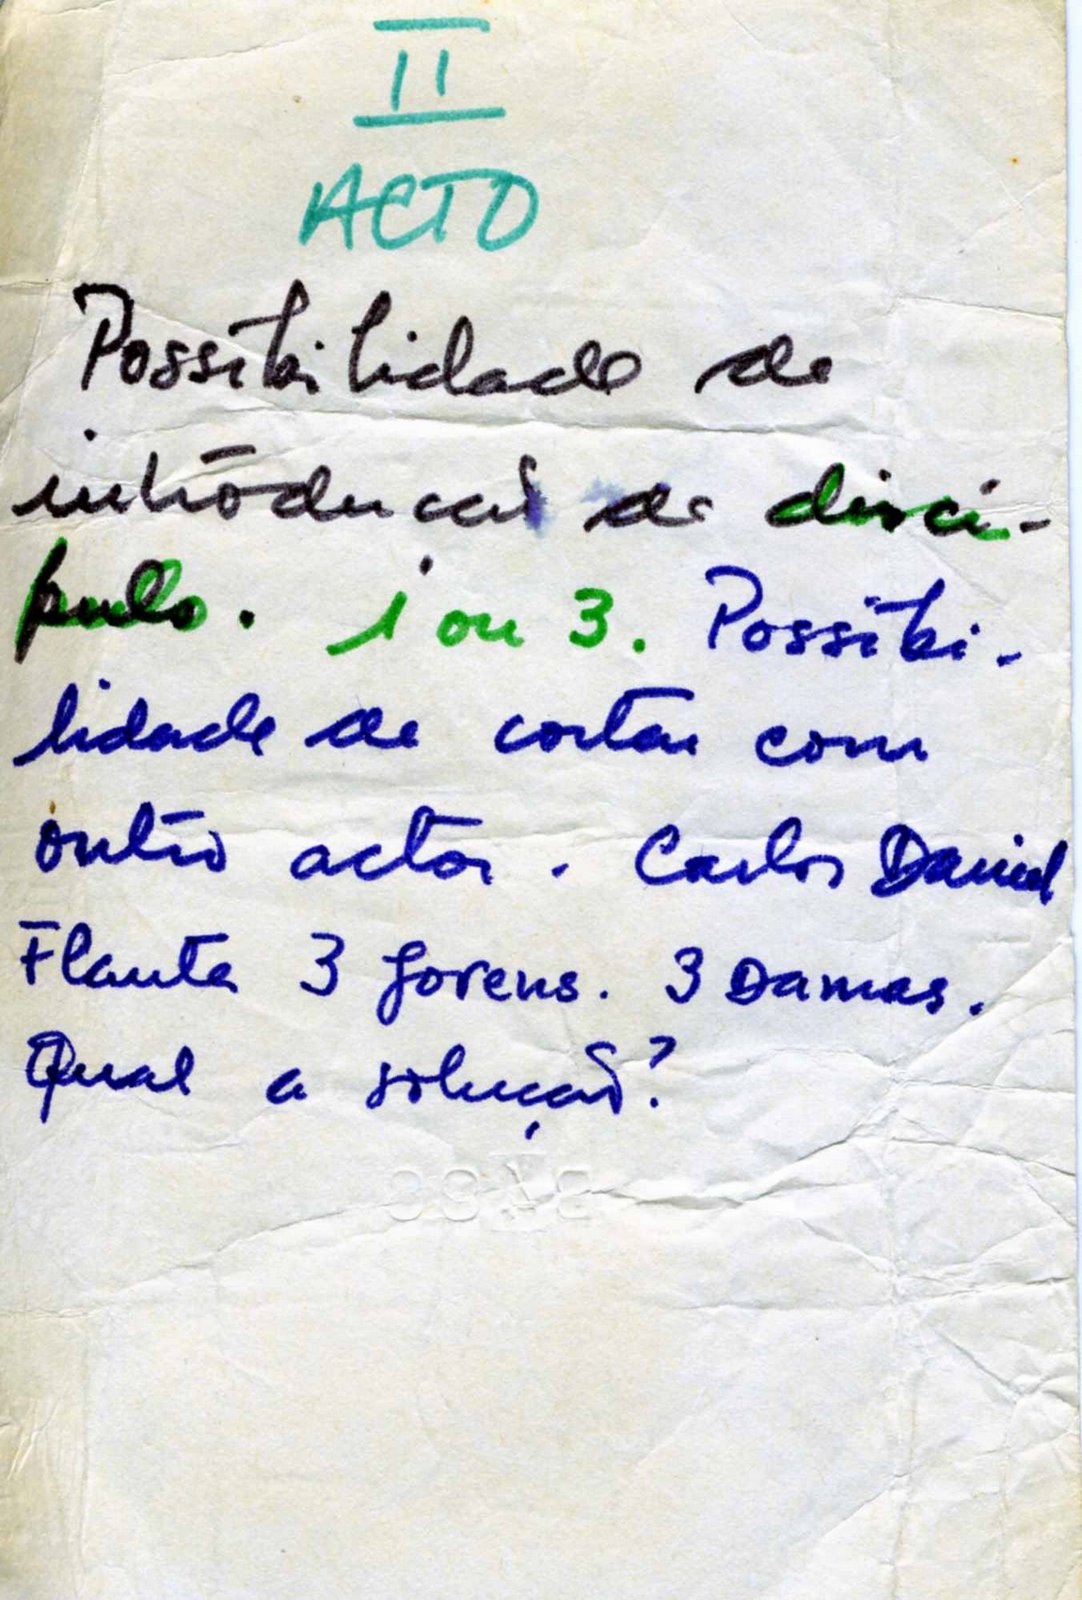 II
ACTO
Possibilidade de
introducaõ de disci-
pulo. 1 ou 3. Possibi-
lidade de contar com
outro actor. Carlos Daniel
Flauta 3 Jovens. 3 Damas.
Qual a solução?